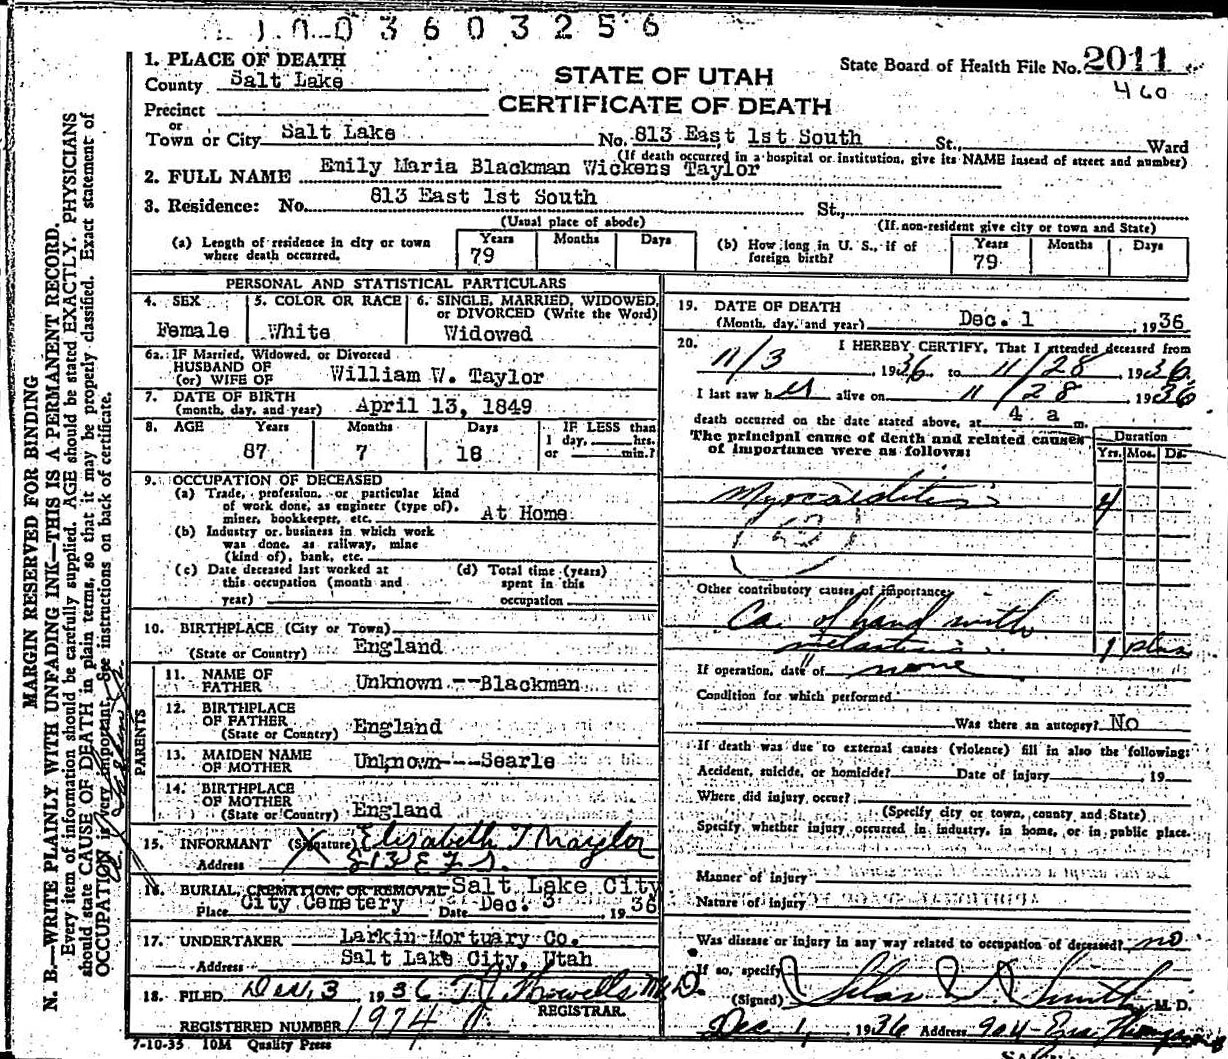 1003603256
1. PLACE OF DEATH
County Salt Lake
Precinct
or
Town or City Salt Lake
STATE OF UTAH
CERTIFICATE OF DEATH
State Board of Health File No. 2011
460
No. 813 East 1st South St., Ward
(If death occurred in a hospital or institution, give its NAME instead of street and number)
2. FULL NAME Emily Maria Blackman Wickens Taylor
3. Residence: No. 813 East 1st South St.,
(Usual place of abode)
(If non-resident give city or town and State)
(a) Length of residence in city or town where death occurred. Years 79 Months Days
(b) How long in U. S., if of foreign birth? Years 79 Months Days
PERSONAL AND STATISTICAL PARTICULARS
4. SEX Female
5. COLOR OR RACE White
6. SINGLE, MARRIED, WIDOWED, or DIVORCED (Write the Word) Widowed
6a. IF Married, Widowed, or Divorced
HUSBAND OF
(or) WIFE OF William W. Taylor
7. DATE OF BIRTH
(month, day, and year) April 13, 1849
8. AGE Years 87 Months 7 Days 18
IF LESS than
1 day, hrs.
or min.?
9. OCCUPATION OF DECEASED
(a) Trade, profession, or particular kind
of work done, as engineer (type of),
miner, bookkeeper, etc. At Home
(b) Industry or business in which work
was done, as railway, mine
(kind of), bank, etc.
(c) Date deceased last worked at
this occupation (month and
year)
(d) Total time (years)
spent in this
occupation
10. BIRTHPLACE (City or Town)
(State or Country) England
PARENTS
11. NAME OF
FATHER Unknown --Blackman
12. BIRTHPLACE
OF FATHER
(State or Country) England
13. MAIDEN NAME
OF MOTHER Unknown---Searle
14. BIRTHPLACE
OF MOTHER
(State or Country) England
15. INFORMANT (Signature) Elizabeth T Naylor
Address 813 E 1 S.
16. BURIAL, CREMATION, OR REMOVAL Salt Lake City
Place City Cemetery Date Dec. 3 1936
17. UNDERTAKER Larkin Mortuary Co.
Address Salt Lake City, Utah
18. FILED Dec. 3 1936 M.D.
REGISTRAR.
REGISTERED NUMBER 1974
7-10-35 10M Quality Press
19. DATE OF DEATH
(Month, day, and year) Dec. 1, 1936
20. I HEREBY CERTIFY, That I attended deceased from
11/3, 1936 to 11/28, 1936
I last saw her alive on 11/28 1936
death occurred on the date stated above, at 4 a m.
The principal cause of death and related causes
of importance were as follows:
Duration
Yrs. Mos. Ds.
Myocarditis 4
Other contributory causes of importance:
Ca. of hand with
1 plus
If operation, date of none
Condition for which performed
Was there an autopsy? No
If death was due to external causes (violence) fill in also the following:
Accident, suicide, or homicide? Date of injury 19
Where did injury occur?
(Specify city or town, county and State)
Specify whether injury occurred in industry, in home, or in public place.
Manner of injury
Nature of injury
Was disease or injury in any way related to occupation of deceased? no
If so, specify
(Signed) Silas S. Smith M. D.
Dec 1, 1936 Address 904
MARGIN RESERVED FOR BINDING
N. B.—WRITE PLAINLY, WITH UNFADING INK—THIS IS A PERMANENT RECORD.
Every item of information should be carefully supplied. AGE should be stated EXACTLY. PHYSICIANS
should state CAUSE OF DEATH in plain terms, so that it may be properly classified. Exact statement of
OCCUPATION is very important. See instructions on back of certificate.